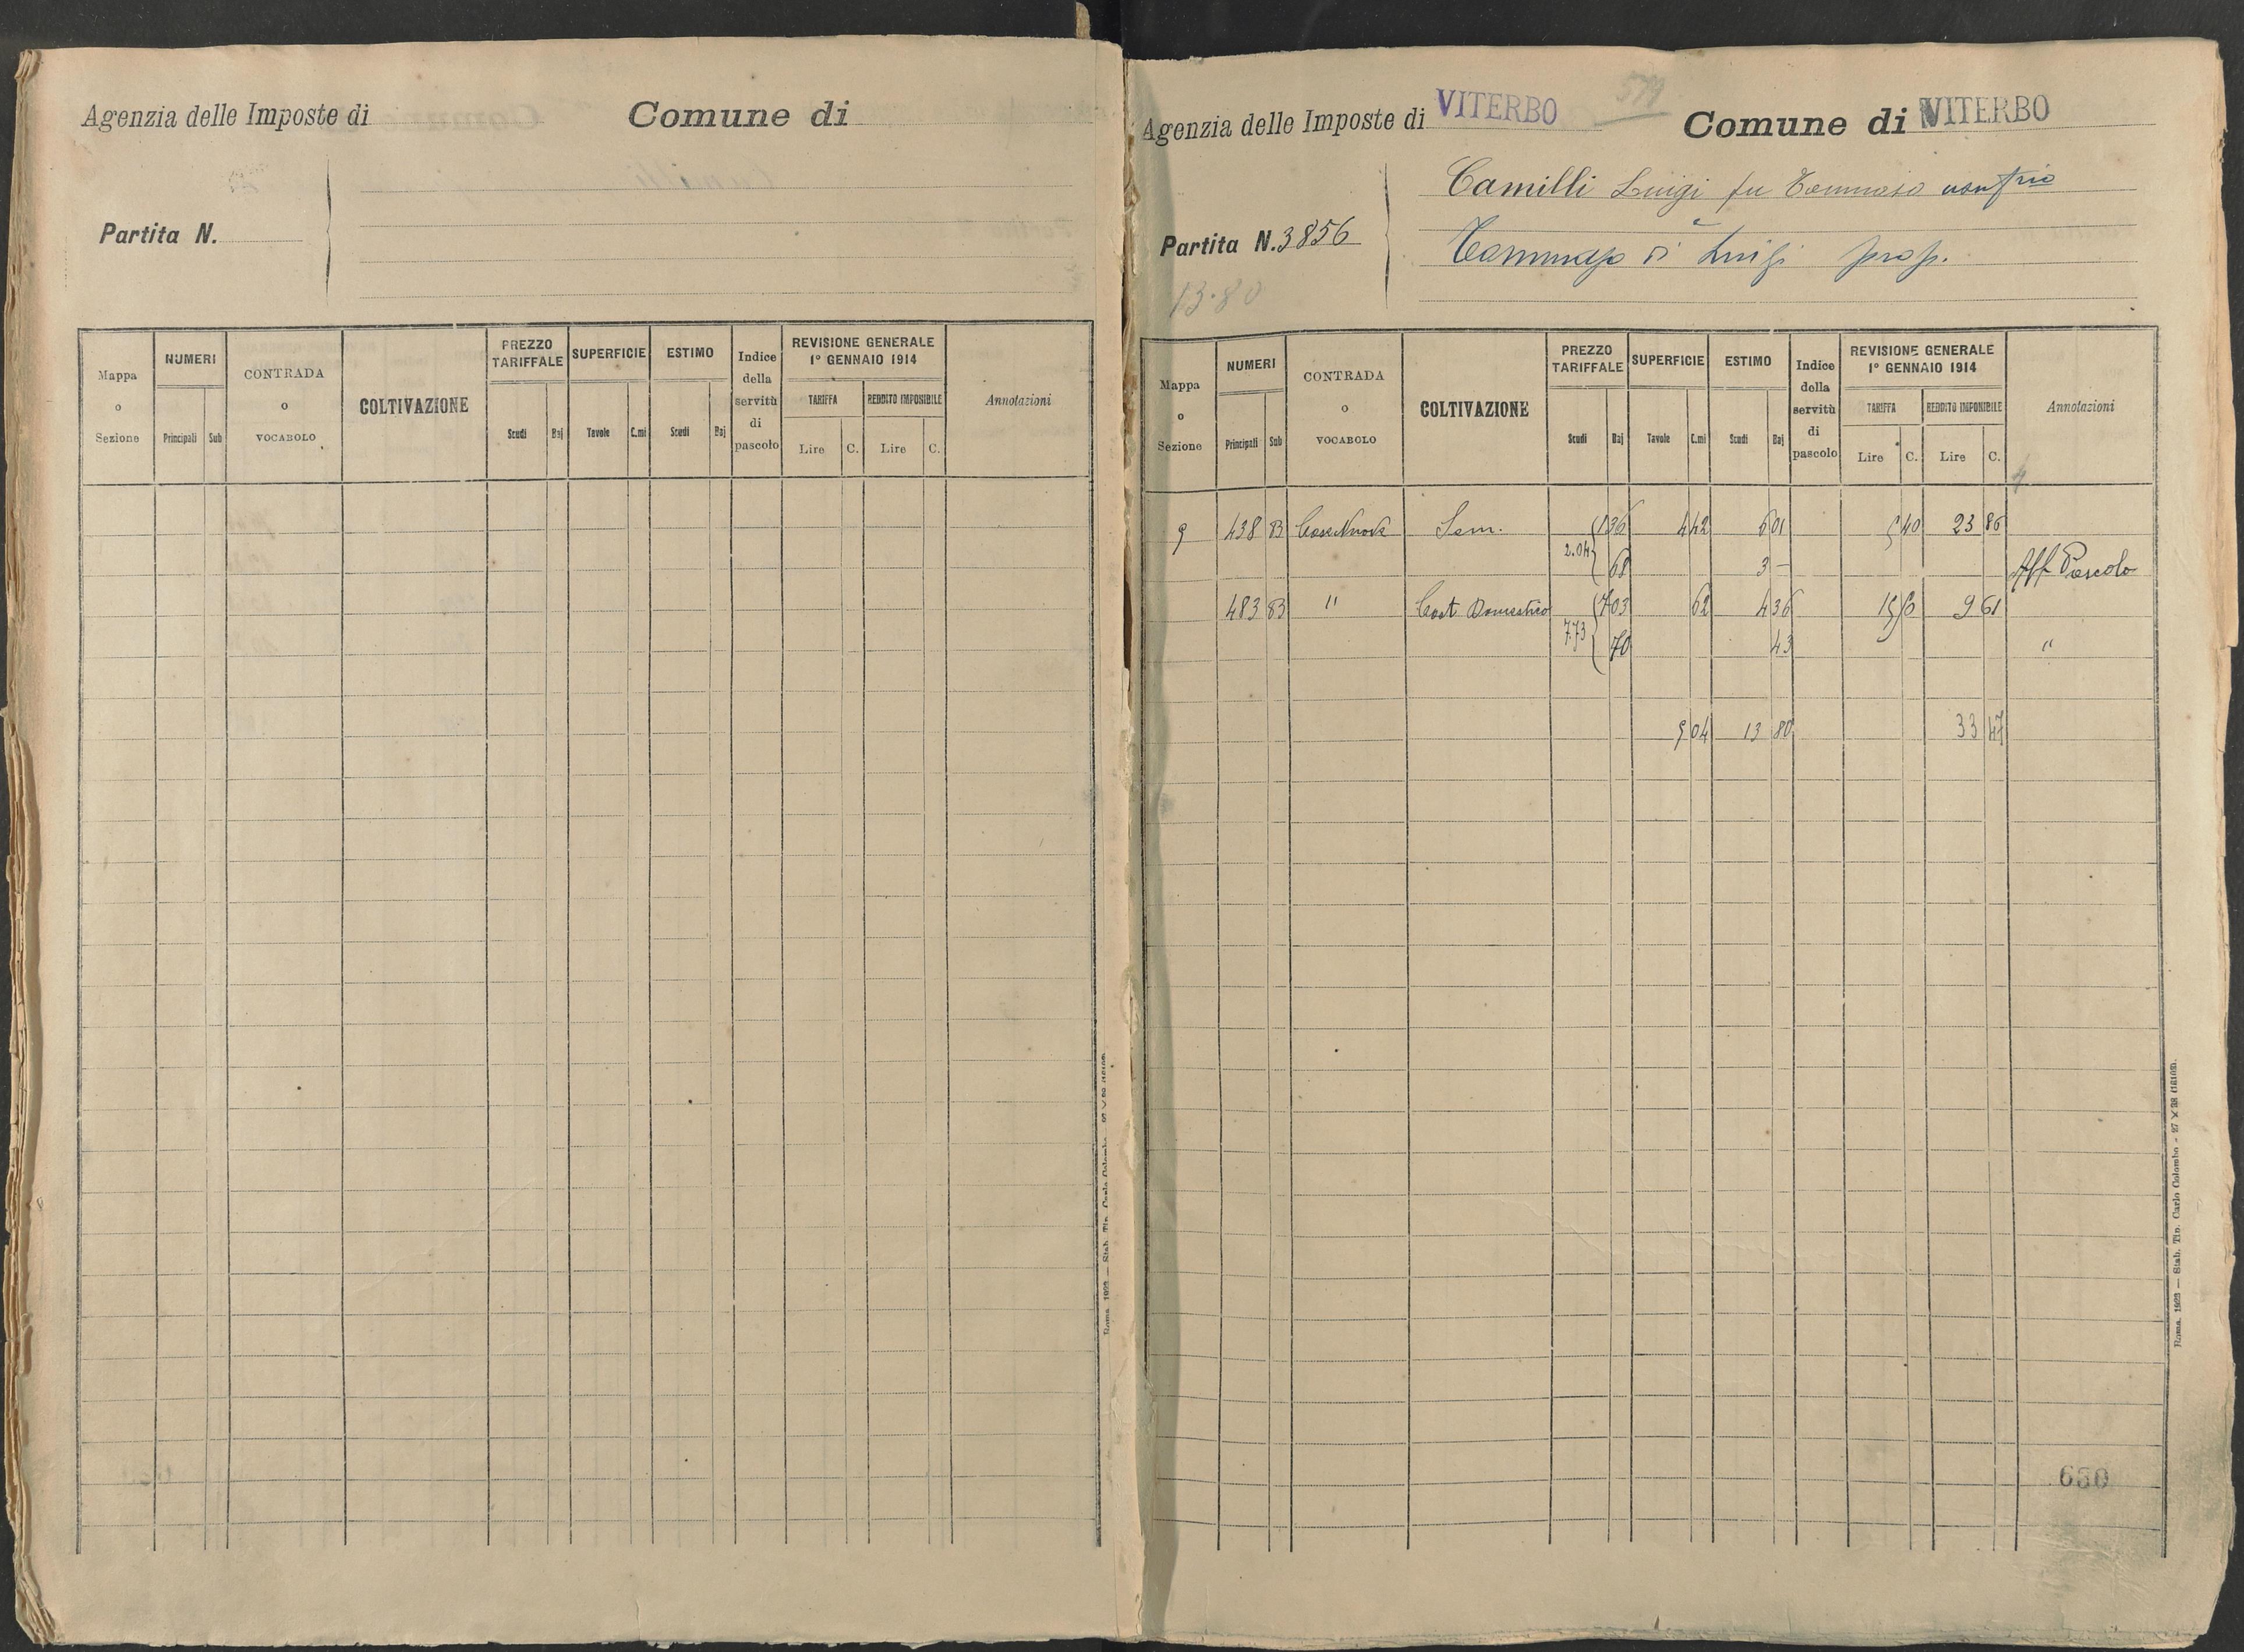 Agenzia delle Imposte di
Comune di
Partita N.
Mappa o Sezione
NUMERI
Principali Sub
CONTRADA o VOCABOLO
COLTIVAZIONE
PREZZO TARIFFALE
Scudi Baj
SUPERFICIE
Tavole C.mi
ESTIMO
Scudi Baj
Indice della servitù di pascolo
REVISIONE GENERALE 1° GENNAIO 1914
TARIFFA
Lire C.
REDDITO IMPONIBILE
Lire C.
Annotazioni
Agenzia delle Imposte di VITERBO
Comune di VITERBO
Camilli Luigi fu Tommaso
Partita N. 3856
Tommaso di Luigi prop.
13.80
Mappa o Sezione
NUMERI
Principali Sub
CONTRADA o VOCABOLO
COLTIVAZIONE
PREZZO TARIFFALE
Scudi Baj
SUPERFICIE
Tavole C.mi
ESTIMO
Scudi Baj
Indice della servitù di pascolo
REVISIONE GENERALE 1° GENNAIO 1914
TARIFFA
Lire C.
REDDITO IMPONIBILE
Lire C.
Annotazioni
9 438 B Case Nuove Sem. 1 36 4 42 6 01 5 40 23 86
2.04 68 3 – Aff Pascolo
483 B " Cast Domestico 7 03 62 4 36 15 50 9 61
7.73 70 43 "
5 04 13 80 33 47
650
Roma, 1923 — Stab. Tip. Carlo Colombo - 27 X 38